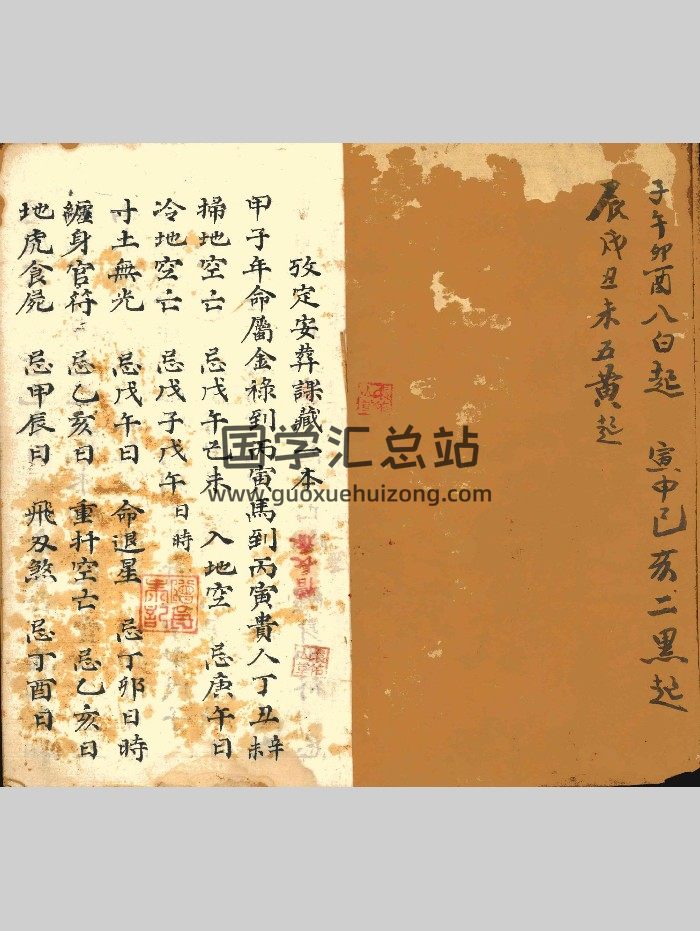 子午卯酉八白起 寅申巳亥二黑起
辰戌丑未五黄起
攷定安葬課藏一本
甲子年命屬金祿到丙寅馬到丙寅貴人丁丑辛未
掃地空亡 忌戊午己未 入地空 忌庚午日
冷地空亡 忌戊子戊午日時
寸土無光 忌戊午日 命退星 忌丁卯日時
纏身官符 忌乙亥日 重扦空亡 忌乙亥日
地虎食屍 忌甲辰日 飛刄煞 忌丁酉日
国学汇总站
www.guoxuehuizong.com